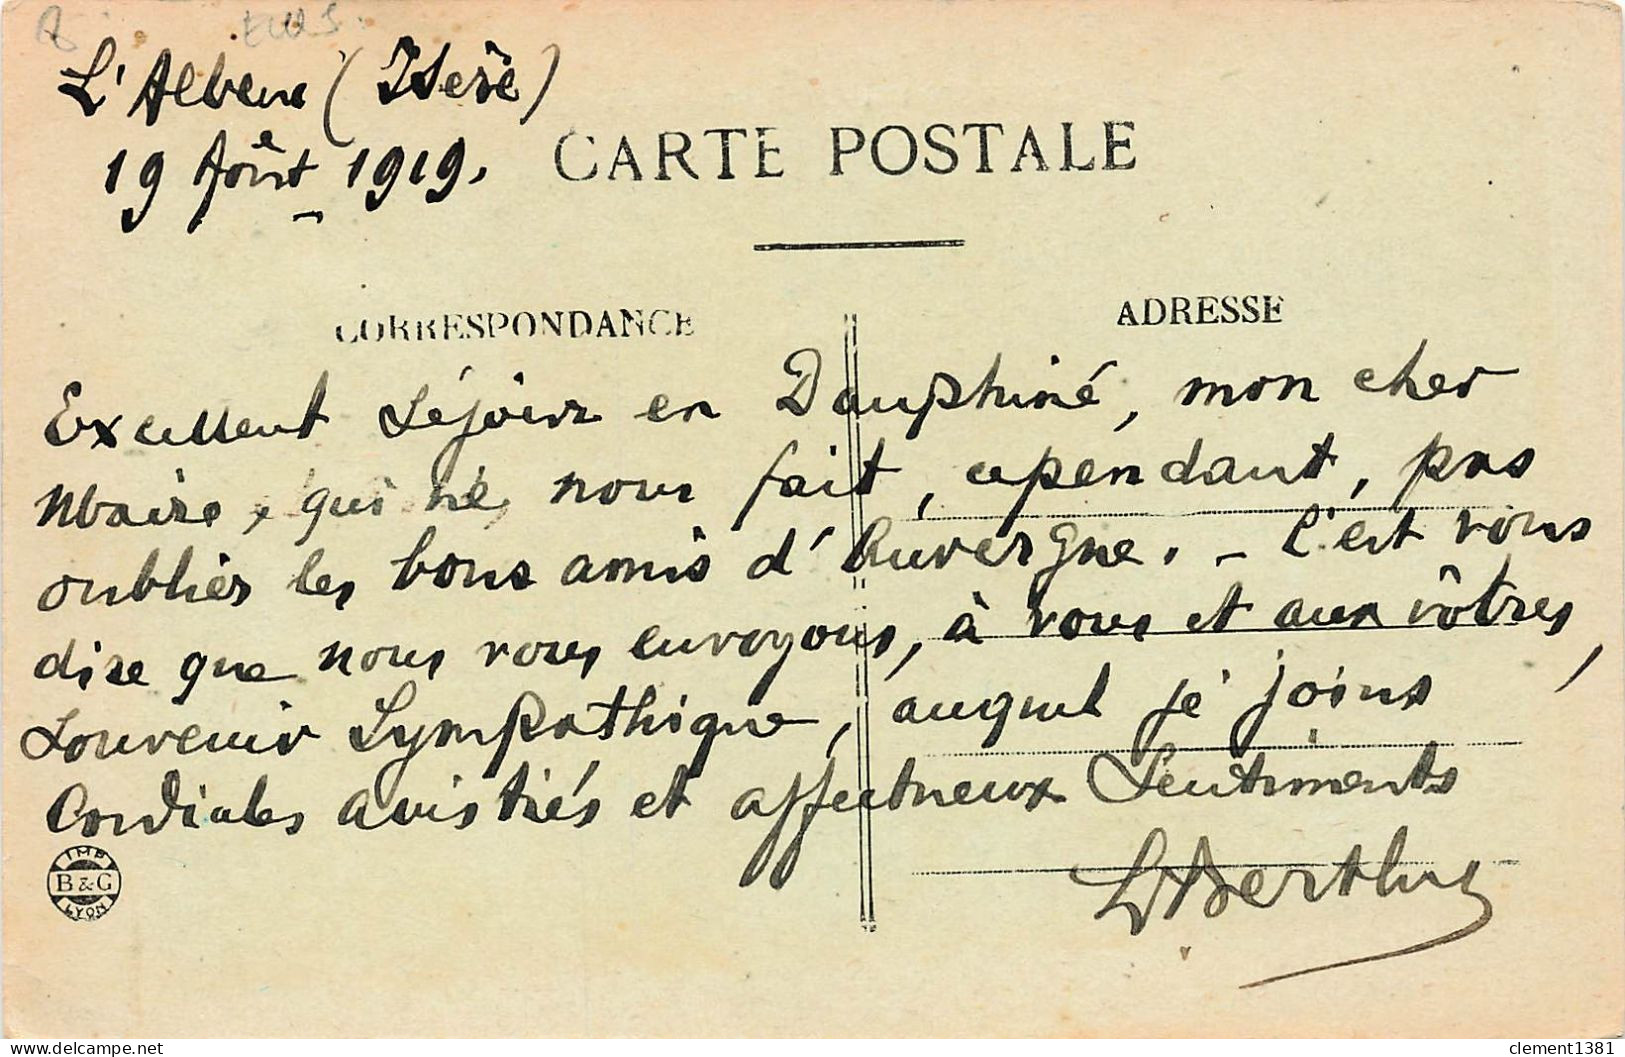 L'Albenc (Isère)
19 Août 1919.
CARTE POSTALE
CORRESPONDANCE
ADRESSE
Excellent séjour en Dauphiné, mon cher
Maire, qui ne nous fait, cependant, pas
oublier les bons amis d'Auvergne. - C'est vous
dire que nous vous envoyons, à vous et aux vôtres,
souvenir sympathique, auquel je joins
Cordiales amitiés et affectueux sentiments
IMP
B & G
LYON
clement1381